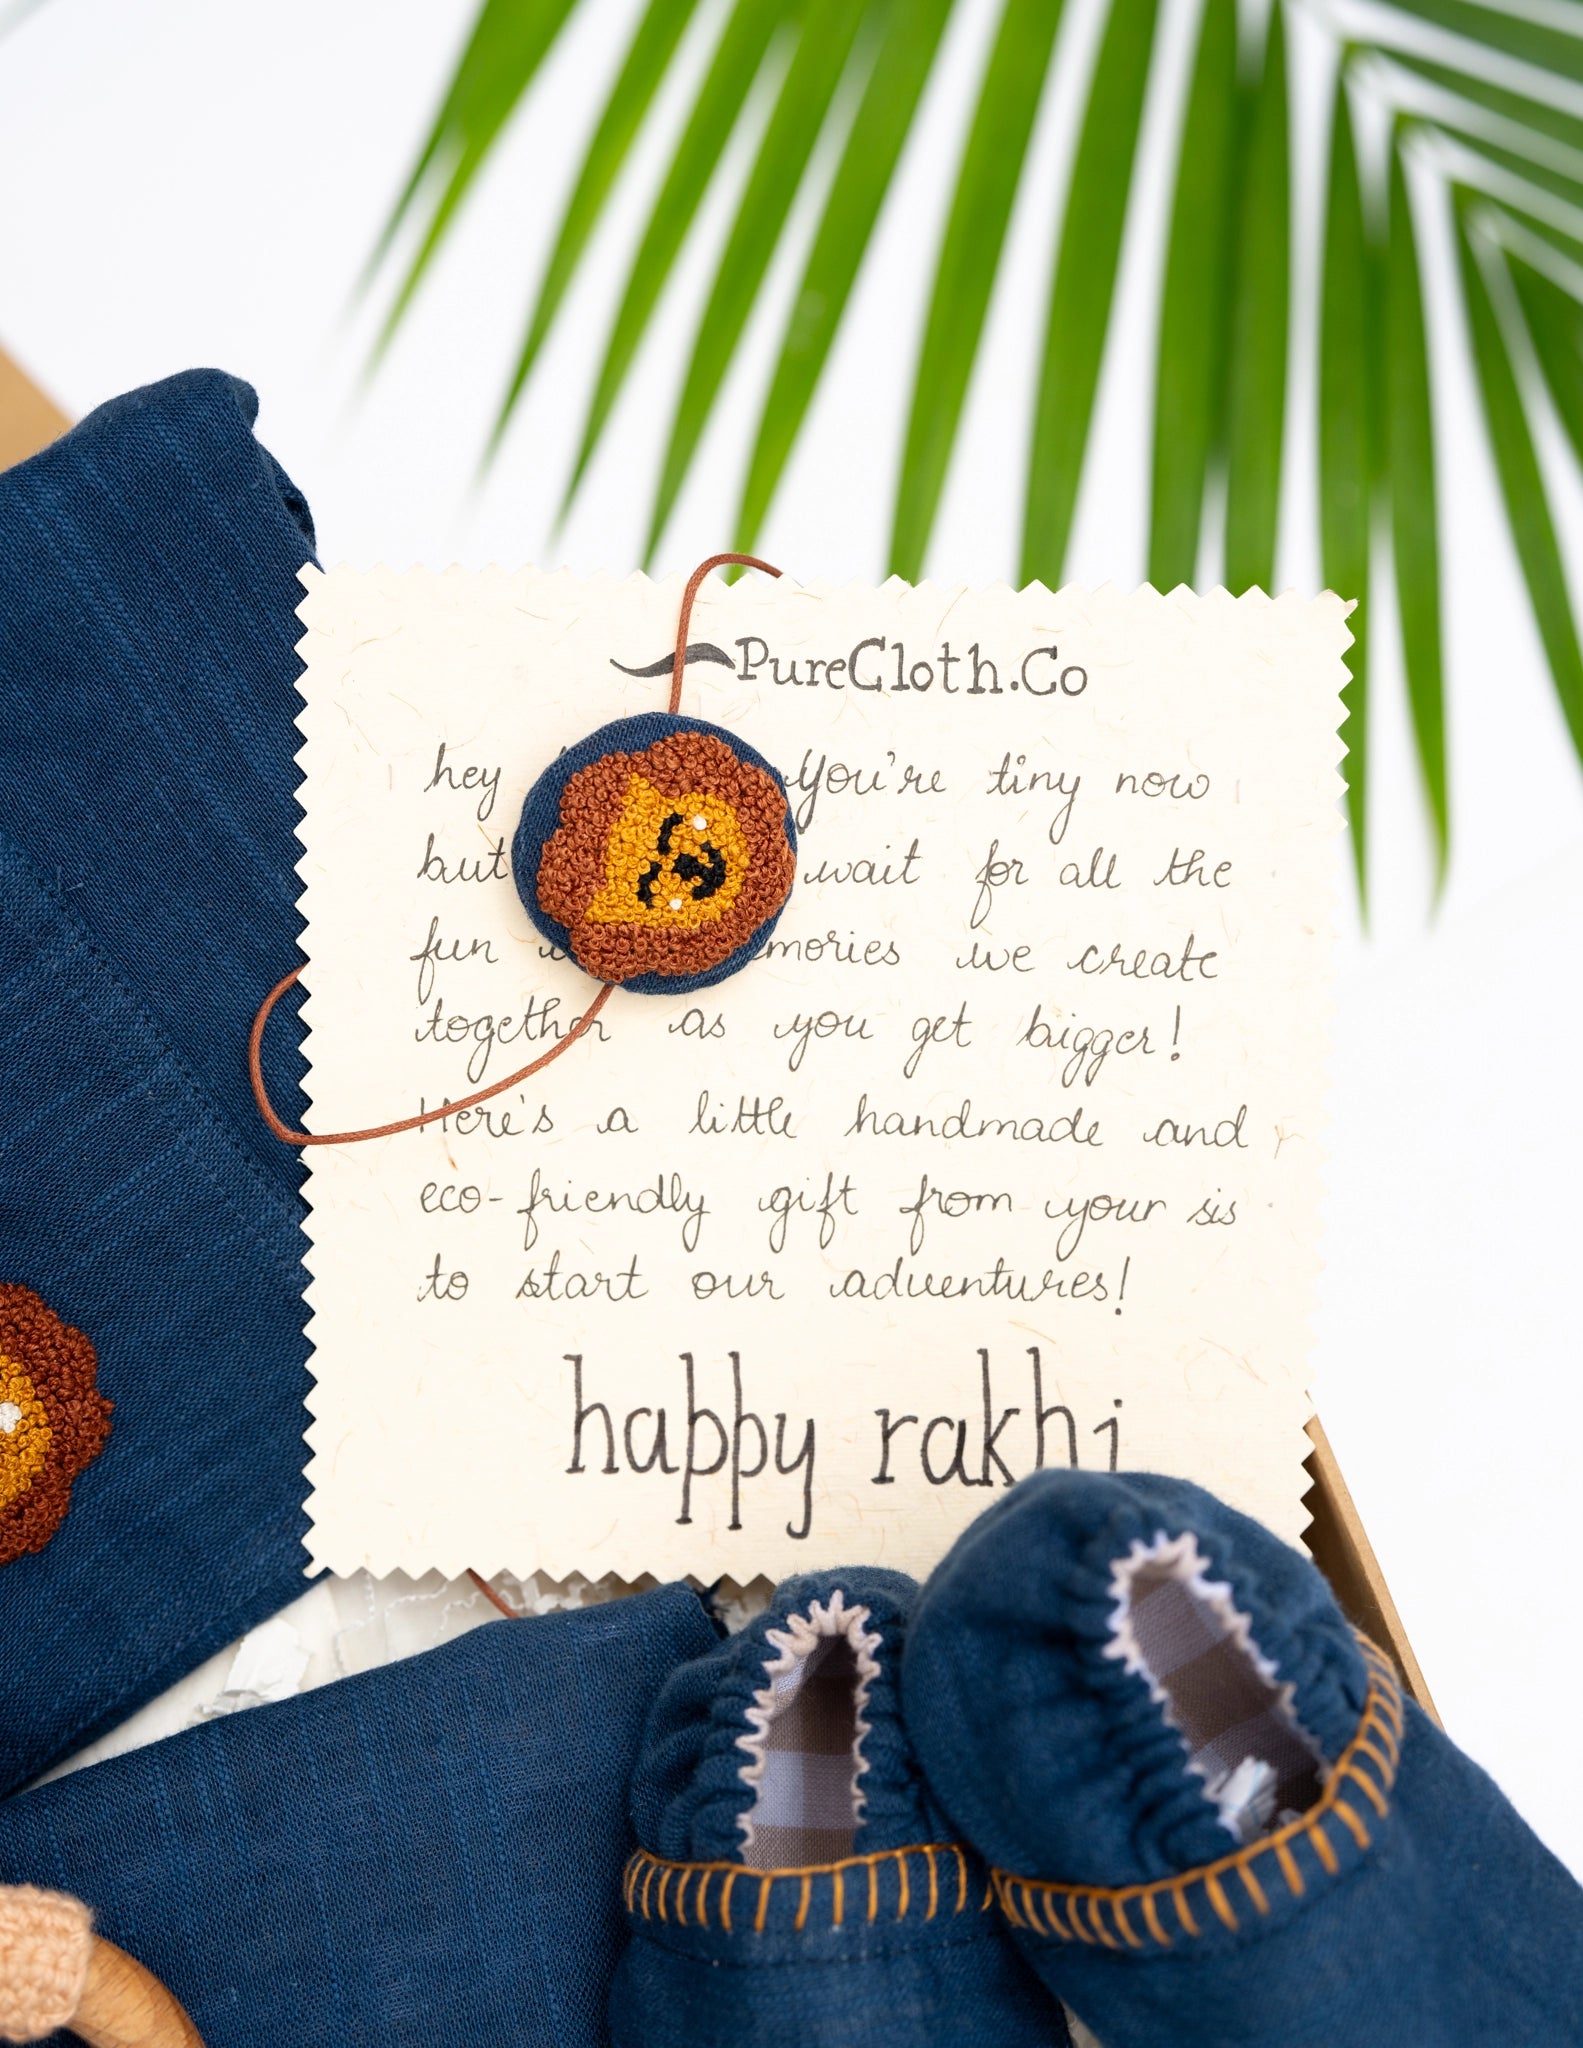 PureCloth.Co
hey You're tiny now
but wait for all the
fun we create
together as you get bigger!
Here's a little handmade and
eco-friendly gift from your sis
to start our adventures!
happy rakhi